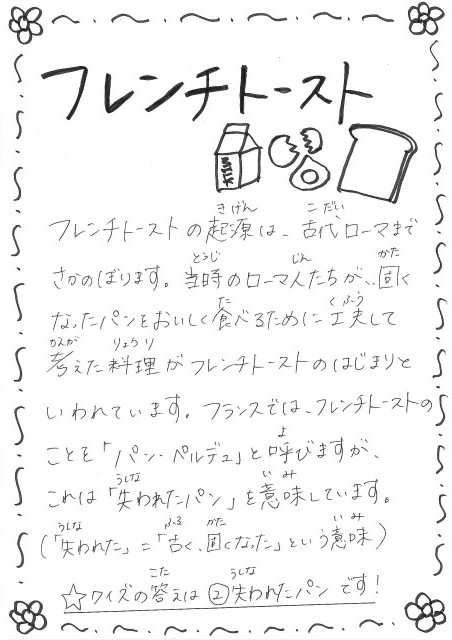 フレンチトースト
MILK
フレンチトーストの起源は、古代ローマまで
さかのぼります。当時のローマ人たちが、固く
なったパンをおいしく食べるために工夫して
考えた料理がフレンチトーストのはじまりと
いわれています。フランスでは、フレンチトーストの
ことを「パン・ペルデュ」と呼びますが、
これは「失われたパン」を意味しています。
(「失われた」=「古く、固くなった」という意味)
☆クイズの答えは②失われたパンです!